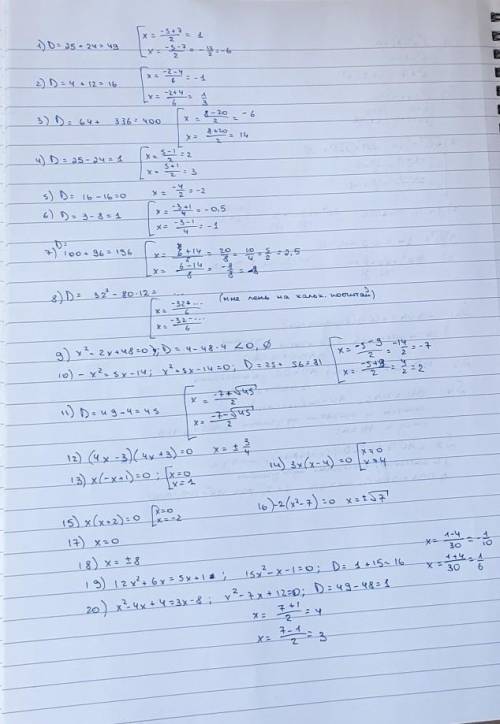 1) D = 25 + 24 = 49 [ x = (-5+7)/2 = 1
x = (-5-7)/2 = -12/2 = -6
2) D = 4 + 12 = 16 [ x = (-2-4)/6 = -1
x = (-2+4)/6 = 1/3
3) D = 64 + 336 = 400 [ x = (8-20)/2 = -6
x = (8+20)/2 = 14
4) D = 25 - 24 = 1 [ x = (5-1)/2 = 2
x = (5+1)/2 = 3
5) D = 16 - 16 = 0 x = -4/2 = -2
6) D = 9 - 8 = 1 [ x = (-3+1)/4 = -0,5
x = (-3-1)/4 = -1
7) D = 100 + 96 = 196 [ x = (6+14)/8 = 20/8 = 10/4 = 5/2 = 2,5
x = (6-14)/8 = -8/8 =
8) D = 32² - 80·12 = ... (мне лень на кальк. посчитай)
[ x = (-32+...)/6
x = (-32-...)/6
9) x² - 2x + 48 = 0; D = 4 - 48·4 < 0, ∅
10) -x² = 5x - 14; x² + 5x - 14 = 0; D = 25 + 56 = 81 [ x = (-5-9)/2 = -14/2 = -7
x = (-5+9)/2 = 4/2 = 2
11) D = 49 - 4 = 45 [ x = (-7+√45)/2
x = (-7-√45)/2
12) (4x - 3)(4x + 3) = 0 x = ± 3/4
13) x(-x+1) = 0; [ x = 0
x = 1
14) 3x(x-4) = 0 [ x = 0
x = 4
15) x(x+2) = 0 [ x = 0
x = -2
16) -2(x² - 7) = 0 x = ±√7
17) x = 0
18) x = ±8
19) 12x² + 6x = 5x + 1; 15x² - x - 1 = 0; D = 1 + 15 = 16 x = (1-4)/30 = -1/10
x = (1+4)/30 = 1/6
20) x² - 4x + 4 = 3x - 8; x² - 7x + 12 = 0; D = 49 - 48 = 1
x = (7+1)/2 = 4
x = (7-1)/2 = 3